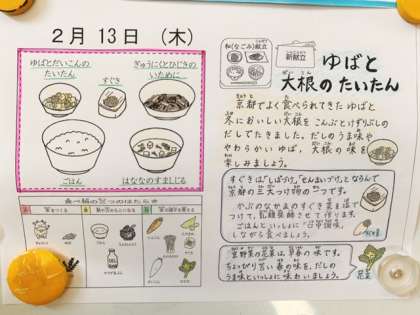 2月13日(木)
ゆばとだいこんの
たいたん
すぐき
ぎゅうにくとひじきの
いために
ごはん
はななのすましじる
食べ物の三つのはたらき
和(なごみ)献立
新献立
ゆばと
大根のたいたん
京都でよく食べられてきたゆばと
冬においしい大根をこんぶとけずりぶしの
だしでたきました。だしのうま味や
やわらかいゆば、大根の味を
楽しみましょう。
すぐきは「しばづけ」、「せんまいづけ」とならんで
京都の三大つけ物の一つです。
かぶのなかまのすぐき菜を塩で
つけて、乳酸発酵させて作ります。
ごはんといっしょに「口中調味」
しながら食べましょう。
花菜は、早春の味です。
ちょっぴり苦い春の味を、だしの
うま味といっしょに味わいましょう。
花菜